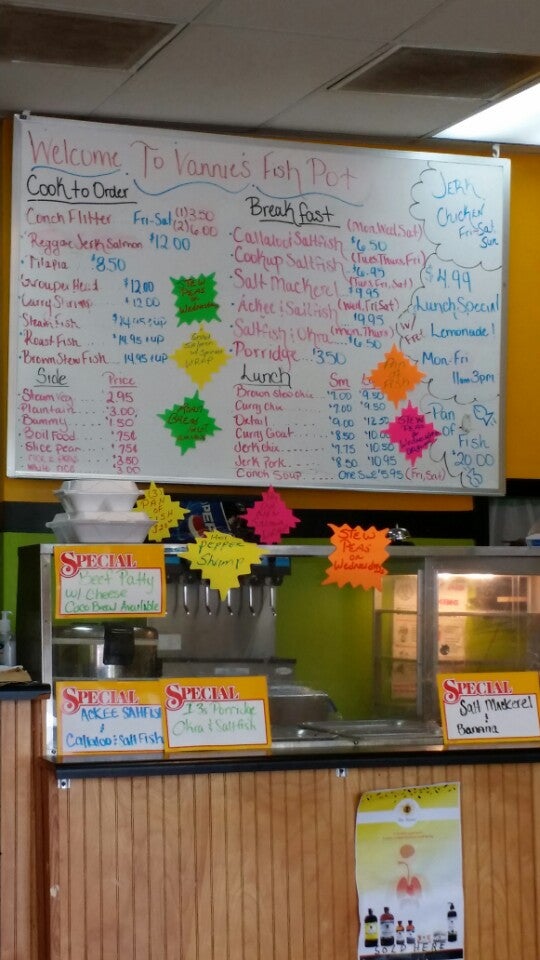 Welcome To Vannie's Fish Pot
Cook to Order
Conch Flitter Fri-Sat (1) 3.50
(2) 6.00
Reggae Jerk Salmon $12.00
Tilapia $8.50
Grouper Head $12.00
Curry Shrimp $12.00
Steam Fish $14.95 + up
Roast Fish 14.95 + up
Brown Stew Fish 14.95 + up
Side Price
Steam Veg 2.95
Plantain 3.00
Bammy 1.50
Boil Food .75¢
Slice Pear .75¢
Rice & Peas 3.50
White Rice 3.00
Breakfast
Callaloo & Saltfish (Mon, Wed, Sat) $6.50
Cookup Saltfish (Tues, Thurs, Fri) $6.95
Salt Mackerel (Tues, Fri, Sat) $9.95
Ackee & Saltfish (Wed, Fri, Sat) $9.95
Saltfish & Okra (Mon, Thurs) $6.50
Porridge 3.50
Lunch Sm
Brown Stew Chix $7.00 $9.50
Curry Chix $7.00 $9.50
Oxtail 9.00 $12.50
Curry Goat $8.50
Jerk Chix $7.75 $10.50
Jerk Pork $8.50 $10.95
Conch Soup One Size $5.95 (Fri, Sat)
Jerk
Chicken
Fri-Sat
Sun
$4.99
Lunch Special
w/ Free Lemonade!
Mon-Fri
11am 3pm
Pan
of
Fish
$20.00
Stew
Peas on
Wednesday
Wrap
Pan
of
Fish
Stew
Peas
on
Wednesday
Pan of
Fish
Hot
Pepper
Shrimp
Stew
Peas on
Wednesday
PEPSI
Special
Beef Patty
w/ Cheese
Coco Bread Available
Special
Ackee Saltfish
Callaloo & Salt Fish
Special
Porridge
Okra & Saltfish
Special
Salt Mackerel
&
Banana
SOLD HERE